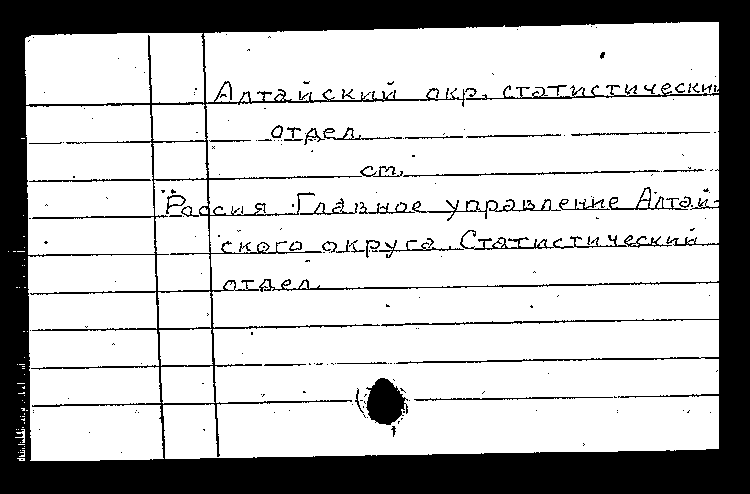 Алтайский окр. статистический
отдел.
см.
Россия. Главное управление Алтай-
ского округа. Статистический
отдел.